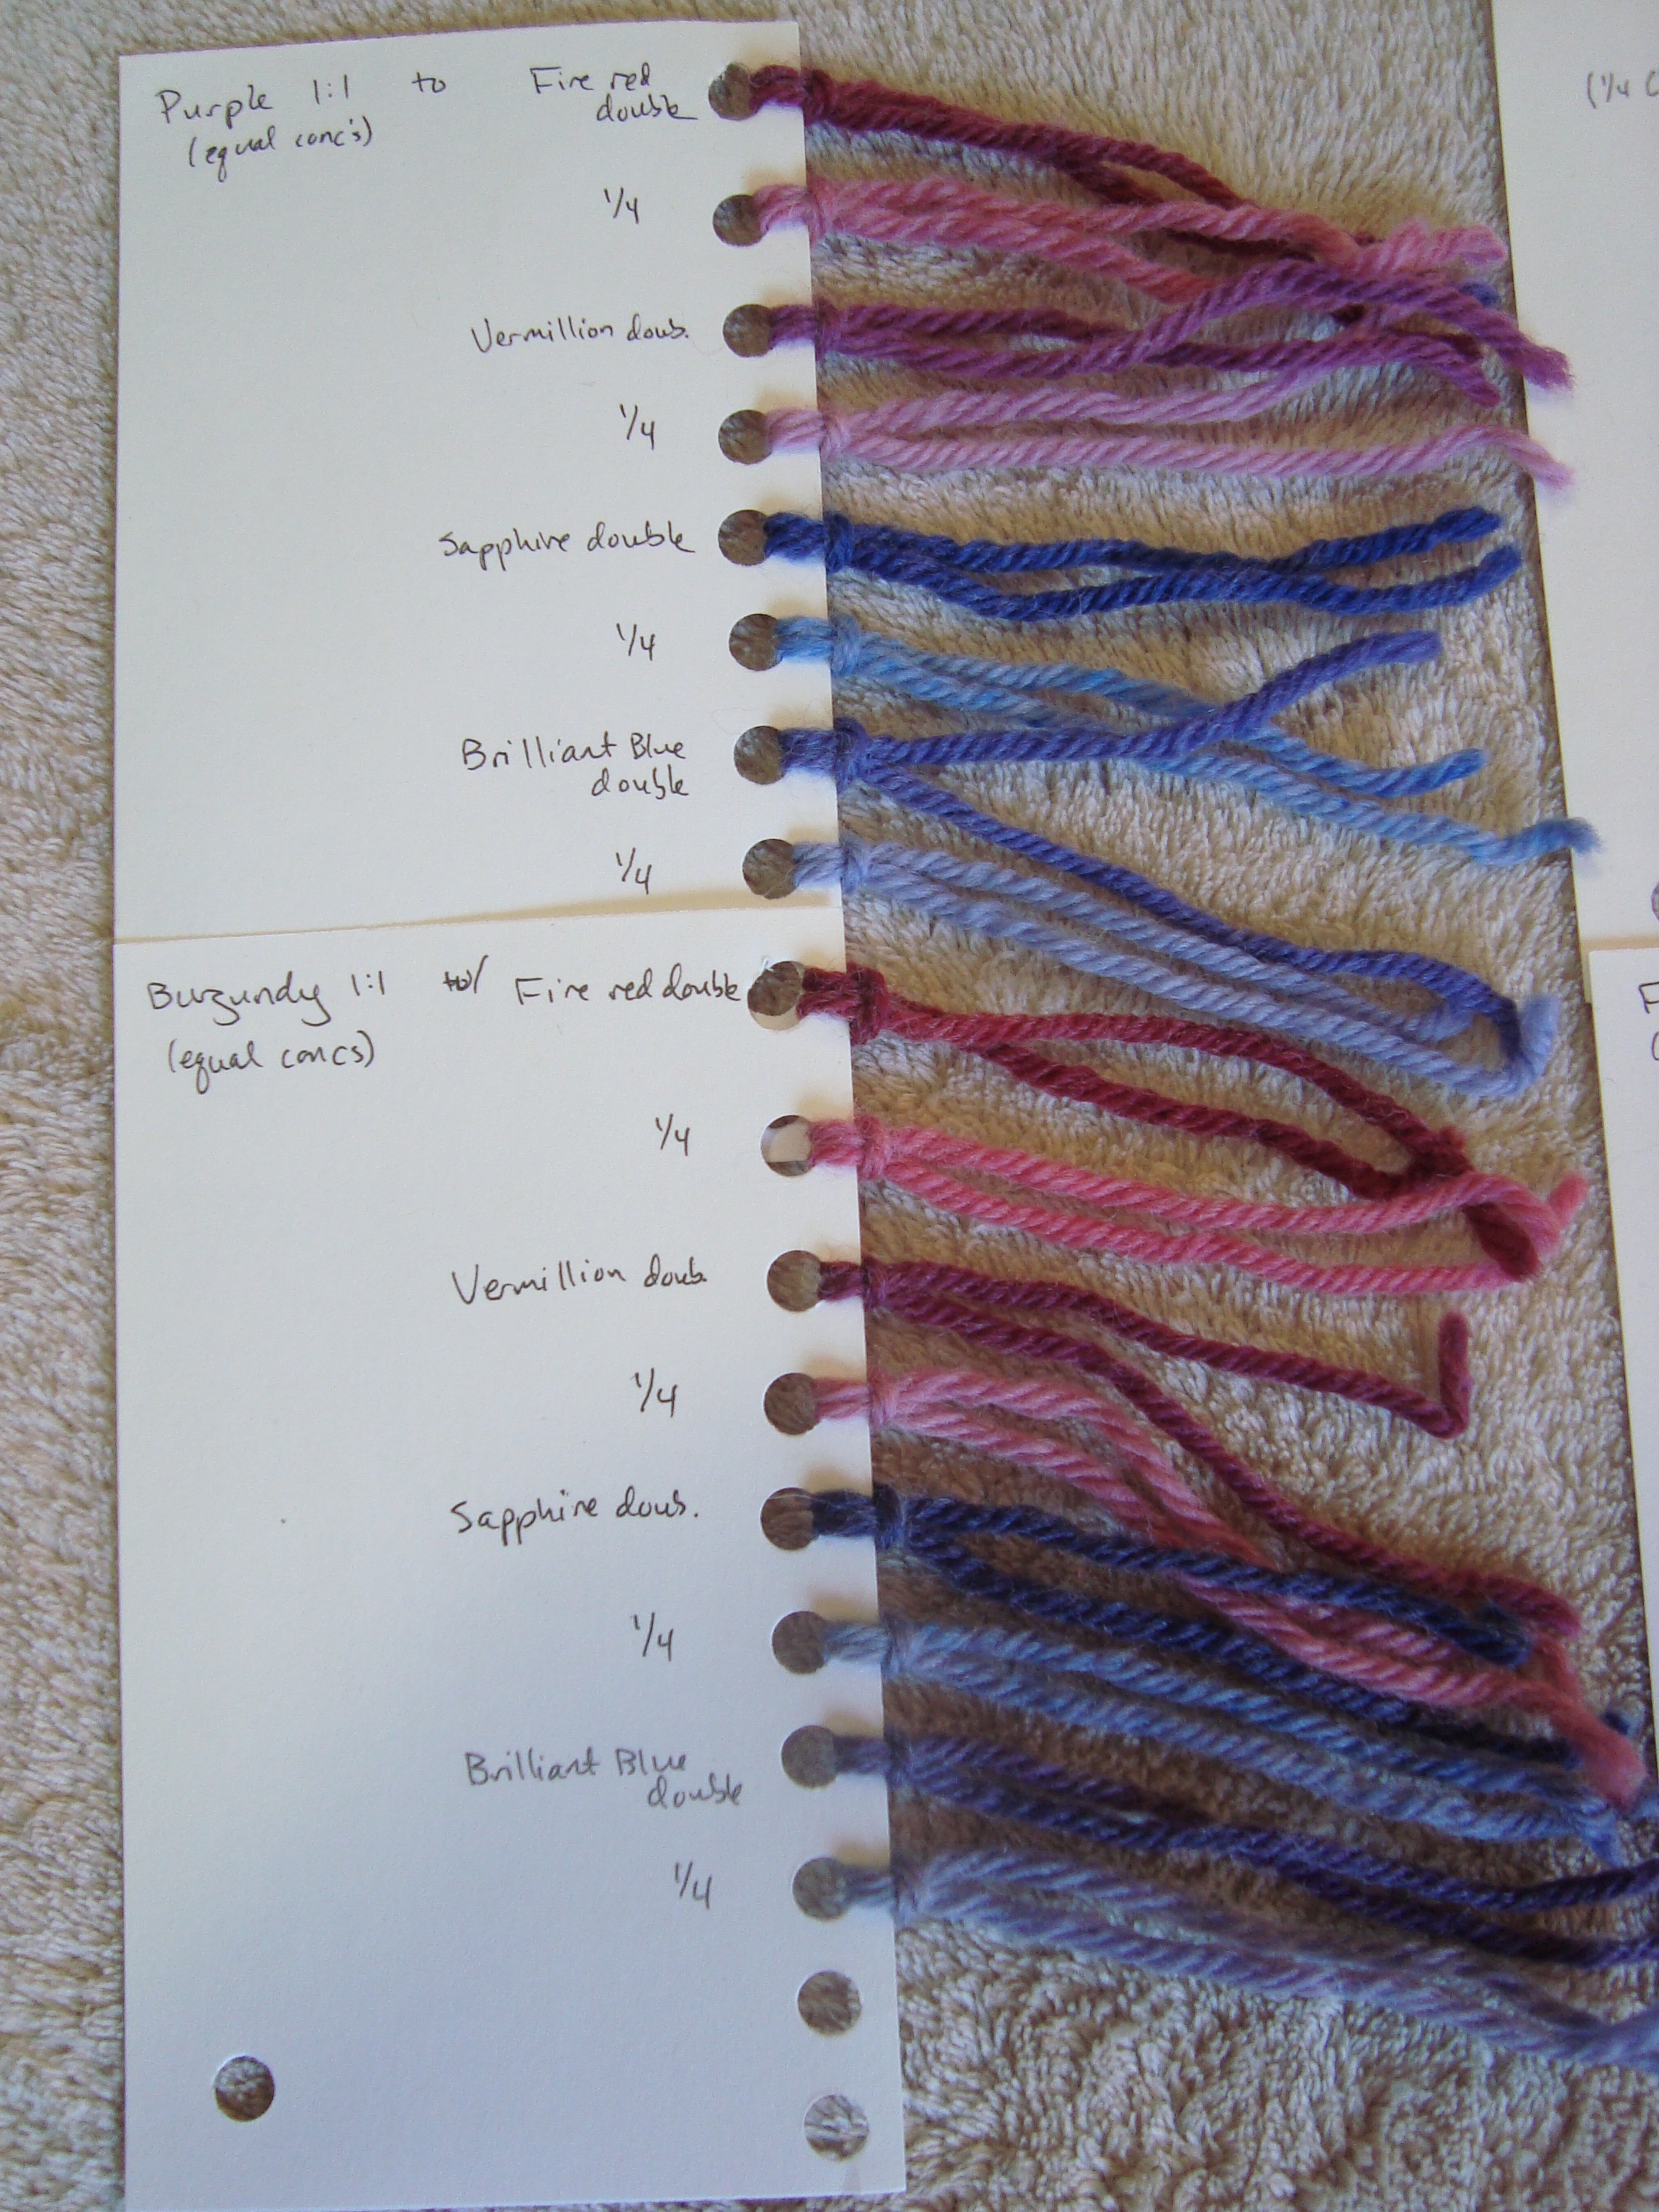 Purple 1:1 to Fire red
double
(equal conc's)
1/4
Vermillion doub.
1/4
Sapphire double
1/4
Brilliant Blue
double
1/4
Burgundy 1:1 w/ Fire red double
(equal concs)
1/4
Vermillion doub.
1/4
Sapphire doub.
1/4
Brilliant Blue
double
1/4
(1/4
F
(